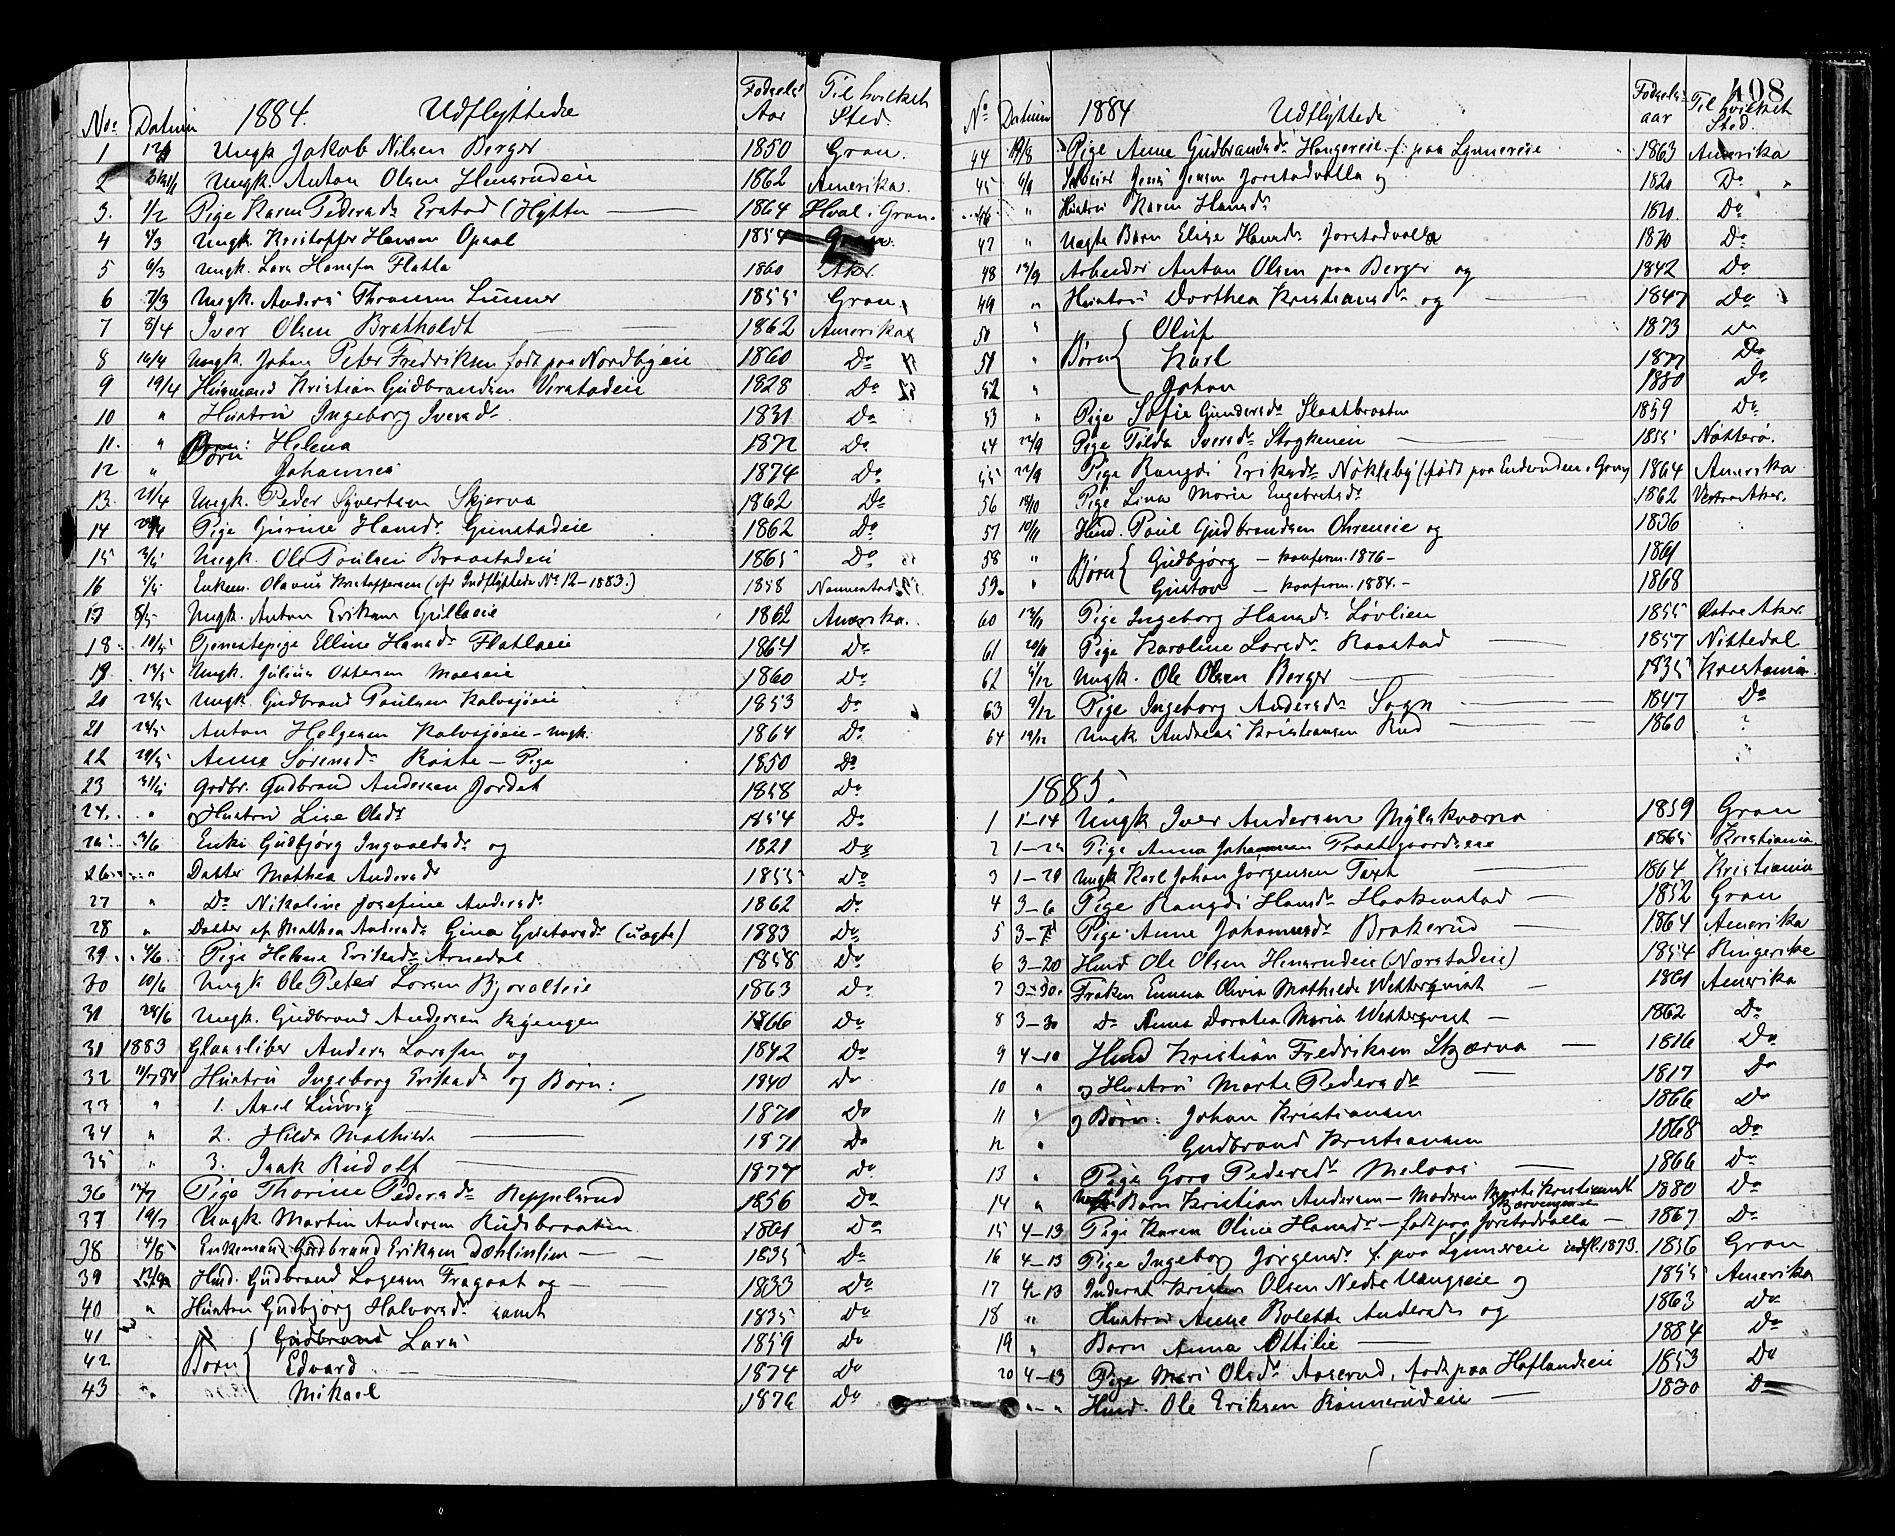 No. Datum 1884. Udflyttede Fødsels Aar Til hvilket Sted.
1 Ungk Jakob Nilsen Berger 1850 Gran.
2 Ungk. Anton Olsen Hensrudeie 1862 Amerika.
3. 1/2 Pige Karen Pedersdr Erstad (Hytten 1864 Hval i Gran.
4 4/3 Ungk. Kristoffer Hansen Opsal 1854 Gran.
5 6/3 Ungk. Lars Hansen Flatla 1860 Aker.
6 7/3 Ungk. Anders Thronsen Lunner 1855 Gran.
7 8/4 Iver Olsen Bratholdt 1862 Amerika
8 16/4 Ungk. Johan Peter Fredriksen født paa Nordbyeie 1860 Do
9 19/4 Husmand Kristian Gudbrandsen Virstadeie 1828 Do
10 " Hustru Ingeborg Iversdr 1831 Do
11. " Børn: Helena 1872 Do
12 " Johannes 1874 Do
13. 21/4 Ungk. Peder Syvertsen Skjerva 1862 Do
14 Pige Gurine Hansdr Grinstadeie 1862 Do
15 3/5 Ungk. Ole Poulsen Braastadeie 1865 Do
16 5/5 Enkem. Olavus Kristoffersen (cfr Indflyttede No 12-1883.) 1858 Nannestad
17 8/5 Ungk. Anton Eriksen Gullaeie 1862 Amerika.
18 10/5 Tjenestepige Elline Hansdr Flatlaeie 1864 Do
19 13/5 Ungk. Julius Ottersen Moeseie 1860 Do
20 23/5 Ungk. Gudbrand Paulsen Kalvsjøeie 1853 Do
21 23/5 Anton Helgesen Kalvsjøeie - Ungk. 1864 Do
22 29/5 Anne Sørensdr Roste - Pige 1850 Do
23 31/5 Grdbr. Gudbrand Andersen Jordet 1858 Do
24. " Hustru Lise Olsdr 1854 Do
25 3/6 Enke Gudbjørg Ingvaldsdr og 1821 Do
26 " Datter Mathea Andersdr 1855 Do
27 " Do Nikoline Josefine Andersdr 1862 Do
28 " Datter af Mathea Andersdr Gina Gustavsdr (uægte) 1883 Do
29 4/6 Pige Helene Eriksdr Arnedal 1858 Do
30 10/6 Ungk Ole Peter Larsen Bjoralteie 1863 Do
31 28/6 Ungk. Gudbrand Andersen Kjengen 1866 Do
31 1883 Glassliber Anders Larssen og 1842 Do
32 11/7 84 Hustru Ingeborg Eriksdr og Børn: 1840 Do
33 " 1. Axel Ludvig 1870 Do
34 " 2. Hilda Mathilde 1871 Do
35 " 3. Isak Rudolf 1877 Do
36 12/7 Pige Thorine Pedersdr Keppelsrud 1856 Do
37 19/7 Ungk Martin Andersen Rudsbraaten 1861 Do
38 4/8 Enkemand Gudbrand Eriksen Dæhlinlien 1835 Do
39 Husmd. Gudbrand Lagesen Fragaat og 1833 Do
40 " Hustru Gudbjørg Halvorsdr samt 1835 Do
41 Gudbrand Lars 1859 Do
42 Børn Edvard 1874 Do
43 " Mikael 1876 Do
408
No Datum 1884 Udflyttede Fødsels aar Til hvilket Sted.
44 19/8 Pige Anne Gudbrandsdr Haugereie f. paa Lynnereie 1863 Amerika
45 6/9 Selveier Jens Jensen Jorstadvolla og 1820 Do
46 " Hustru Karen Hansdr 1820. Do
47 " Uægte Barn Elise Hansdr Jorstadvolla 1870 Do
48 12/9 Arbeider Anton Olsen paa Berger og 1842 Do
49 " Hustru Dorthea Kristiansdr og 1847 Do
50 " Oluf 1873 Do
51 " Børn Karl 1877 Do
52 " Johan 1880 Do
53 " Pige Sofie Gundersdr Slaatbraaten 1859 Do
54 22/9 Pige Tilda Iversdr Strykeneie 1855 Nøtterø.
55 22/9 Pige Rangdi Eriksdr Nøkleby (født paa Enderuden i Gran) 1864 Amerika
56 18/10 Pige Lina Marie Engebretsdr 1862 Vestre Aker.
57 10/11 Husmd. Paul Gudbrandsen Ohreneie og 1836
58 " Børn Gudbjørg - konfirm. 1876 - 1861
59. " Gustav - konfirm. 1884. - 1868
60 13/11 Pige Ingeborg Hansdr Løvlien 1855 Østre Aker.
61 20/11 Pige Karoline Larsdr Raastad 1857 Nittedal
62 4/12 Ungk. Ole Olsen Berger 1835 Kristiania
63 9/12 Pige Ingeborg Andersdr Sogn 1847 Do
64 19/12 Ungk. Andreas Kristiansen Rud 1860 ?
1885.
1 1-14 Ungk Iver Andersen Mylskværna 1859 Gran
2 Pige Anna Johannesen Prestgaardseie 1865 Kristiania
3 1-29 Ungk Karl Johan Jørgensen Tart 1864 Kristiania
4 3-6 Pige Rangdi Hansdr Haakenstad 1852 Gran
5 3-7 Pige Anne Johannesdr Brakerud 1864 Amerika
6 3-20 Husmd Ole Olsen Hensruden (Nærstadeie) 1854 Ringerike
7 3-30. Frøken Emma Olivia Mathilde Wetterqvist 1861 Amerika
8 3-30 Do Anna Dorotea Maria Wetterqvist 1862 Do
9 4-10 Husmd Kristian Fredriksen Skjærva 1816 Do
10 " og Hustru Marte Pedersdr 1817 Do
11 " og Børn: Johan Kristiansen 1866 Do
12 " Gudbrand Kristiansen 1868 Do
13 " Pige Goro Pedersdr Melaas 1866 Do
14 " Uægte Barn Kristian Andersen - Moderen Marte Kristiansdr Skjervengen 1880 Do
15 4-13 Pige Karen Oline Hansdr - født paa Jorstadvolla - 1867 Do
16 4-13 Pige Ingeborg Jørgensdr f. paa Lynnereie indfl. 1873. 1856 Gran
17 4-13 Inderst Kristen Olsen Nedre Vangseie og 1855 Amerika
18 " Hustru Anne Bolette Andersdr og 1863 Do
19 " Barn Anna Ottilie 1884 Do
20 4-13 Pige Mari Olsdr Aaserud, født paa Hoflandseie 1853 Do
" - " Husmd. Ole Eriksen Rønnerudeie 1830 Do